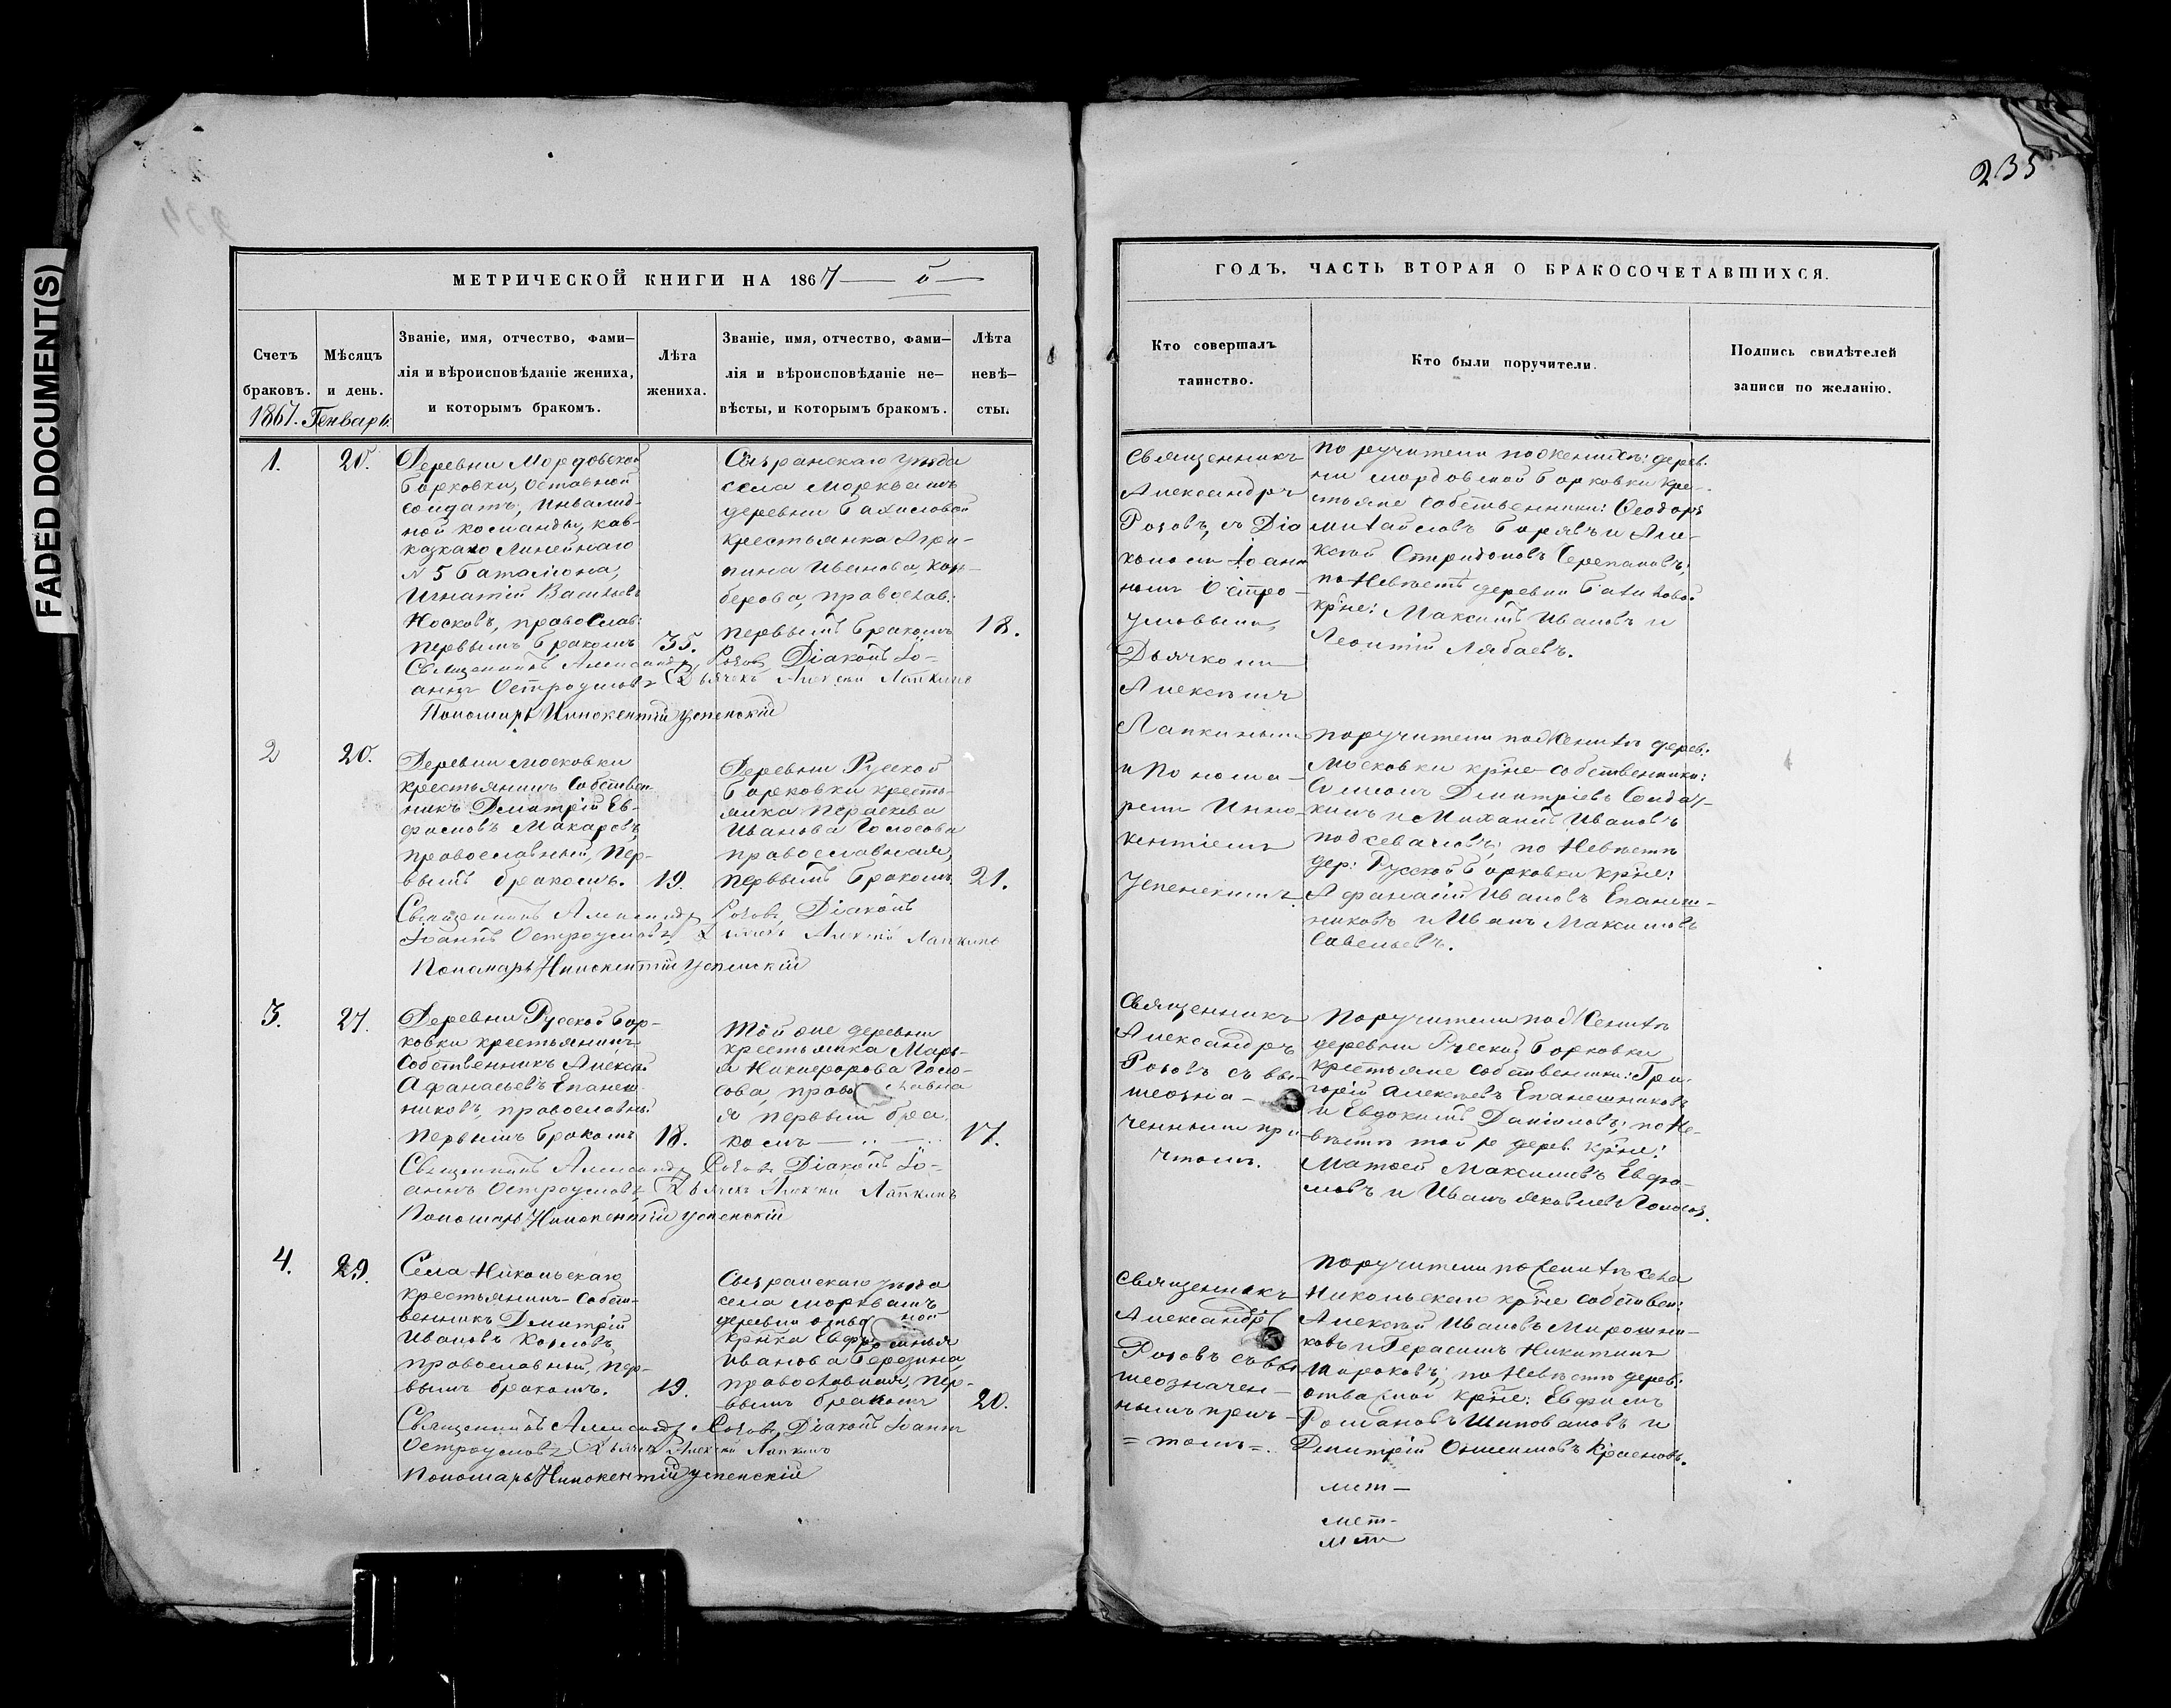 FADED DOCUMENT(S)
235
МЕТРИЧЕСКОЙ КНИГИ НА 1867 — й —
Счетъ
браковъ.
1867.
Мѣсяцъ
и день.
Генварь.
Званіе, имя, отчество, фами-
лія и вѣроисповѣданіе жениха,
и которымъ бракомъ.
Лѣта
жениха.
Званіе, имя, отчество, фами-
лія и вѣроисповѣданіе не-
вѣсты, и которымъ бракомъ.
Лѣта
невѣ-
сты.
1.
20.
Деревни Мордовской
Борковки, Оставной
солдатъ, Инвалид-
ной команды, кав-
казкаго Линейнаго
N 5 баталіона,
Игнатій Васильевъ
Носковъ, православ:
первымъ бракомъ
35.
Сызранскаго уѣзда
села Морквашъ
деревни Бахиловой
крестьянка Агри-
пина Иванова,
православ:
первымъ бракомъ
18.
Священникъ Александръ Розовъ, Діаконъ Іо-
аннъ Остроумовъ Дьячекъ Алексѣй Лапкинъ
Пономарь Иннокентій Успенскій
2
20.
Деревни Московки
крестьянинъ Собствен-
никъ Дмитрій Ев-
фимовъ Макаровъ,
православный, пер-
вымъ бракомъ.
19.
Деревни Русской
Борковки кресть-
янка Параскева
Иванова Голосова
православная,
первымъ бракомъ
21.
Священникъ Александръ Розовъ, Діаконъ
Іоаннъ Остроумовъ, Дьячекъ Алексѣй Лапкинъ
Пономарь Иннокентій Успенскій
3.
27.
Деревни Русской Бор-
ковки крестьянинъ
Собственникъ Алексѣй
Афанасьевъ Епанеш-
никовъ, православный
первымъ бракомъ
18.
Той же деревни
крестьянка Марь-
я Никифорова Голо-
сова, православна
я первым бра
комъ
17.
Священникъ Александръ Розовъ Діаконъ Іо-
аннъ Остроумовъ, Дьячекъ Алексѣй Лапкинъ
Пономарь Иннокентій Успенскій
4.
29.
Села Никольскаго
крестьянинъ Собст-
венникъ Дмитрій
Ивановъ Козловъ,
православный, пер-
вымъ бракомъ.
19.
Сызранскаго уѣзда
села Морквашъ
деревни отва ной
кр-нка Евфросинья
Иванова Березина,
православная, пер-
вымъ бракомъ
20.
Священникъ Александръ Розовъ, Діаконъ Іоаннъ
Остроумовъ Дьячекъ Алексѣй Лапкинъ
Пономарь Иннокентій Успенскій
ГОДЪ. ЧАСТЬ ВТОРАЯ О БРАКОСОЧЕТАВШИХСЯ.
Кто совершалъ
таинство.
Кто были поручители.
Подпись свидѣтелей
записи по желанію.
Священникъ
Александръ
Розовъ, съ Діа
кономъ Іоанн
номъ Остро-
умовымъ,
Дьячкомъ
Алексѣемъ
Лапкинымъ
и Понома-
ремъ Инно-
кентіемъ
Успенскимъ.
Поручители по Женихѣ: дерев.
ни Мордовской Борковки кре-
стьяне собственники: Ѳеодоръ
Михайловъ и Але-
ксѣй Спиридоновъ Черепановъ;
по Невѣстѣ деревни Бахиловой
кр-не: Максимъ Ивановъ и
Леонтій Лябаевъ.
Поручители по Женихѣ дерев.
Московки кр-не собственники:
Дмитріевъ Солдат-
кинъ и Михаилъ Ивановъ
по Невѣстѣ
дер: Русской Борковки кр-не:
Афанасій Ивановъ Епанеш-
никовъ и Иванъ Максимовъ
Савельевъ.
Священникъ
Александръ
Розовъ съ вы-
шеозна-
ченнымъ при
чтомъ.
Поручители по Женихѣ
деревни Русской Борковки
крестьяне собственники: Гри-
горій Алексѣевъ Епанешниковъ
и Евдокимъ Даниловъ; по Не-
вѣстѣ той же дерев. кр-не:
Матвей Максимовъ Евфи-
мовъ и Иванъ Яковлевъ Голосов.
Священникъ
Александръ
Розовъ съ вы
шеозначен-
нымъ прич-
= томъ =.
Поручители по Женихѣ села
Никольскаго кр-не собствен:
Алексѣй Ивановъ Мирошни-
ковъ и Герасимъ Никитинъ
Широковъ; по Невѣстѣ дерев:
отважной кр-не: Евфимъ
Романовъ Шиповаловъ и
Дмитрій Онисимовъ Красновъ.
мет-
мет-
мет